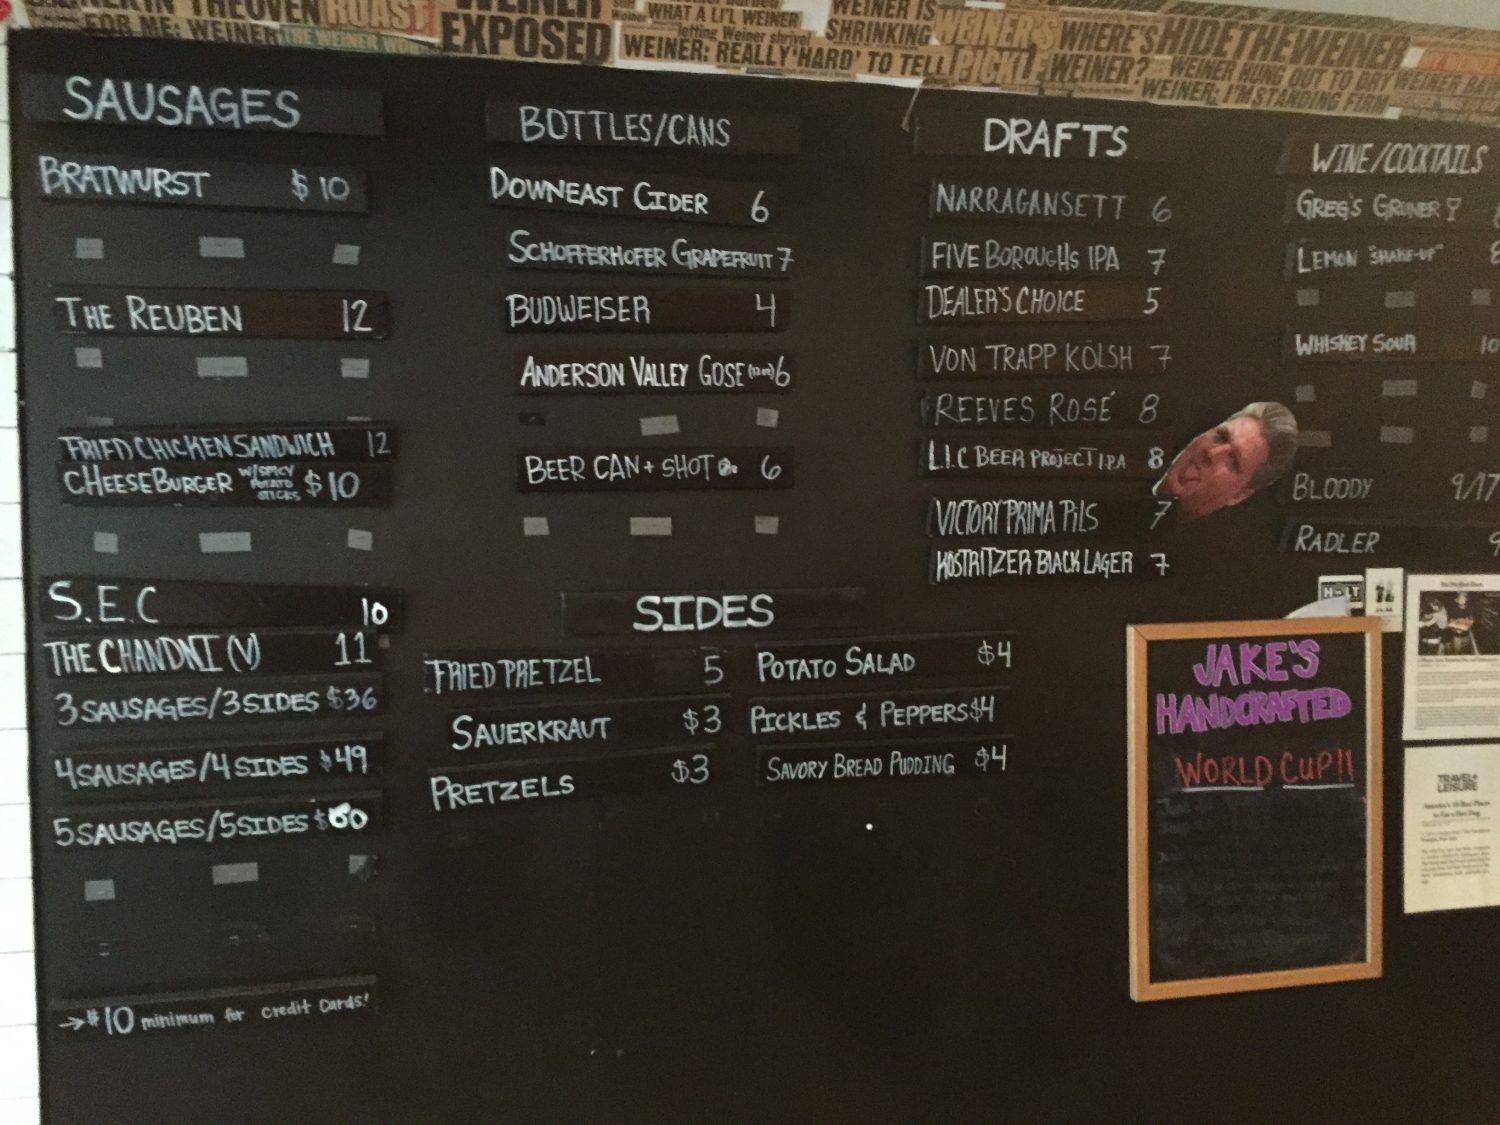 IN THE OVEN
ROAST
WEINER
FOR ME: WEINER
THE WEINER
EXPOSED
WHAT A LI'L WEINER
letting Weiner shrivel
WEINER: REALLY 'HARD' TO TELL
WEINER IS
SHRINKING
WEINER'S
PICKLE
WHERE'S
WEINER?
HIDE THE WEINER
WEINER HUNG OUT TO DRY
WEINER: I'M STANDING FIRM
SAUSAGES
BRATWURST $10
THE REUBEN 12
FRIED CHICKEN SANDWICH 12
CHEESEBURGER W/SPICY POTATO STICKS $10
S.E.C 10
THE CHANDNI (V) 11
3 SAUSAGES/3 SIDES $36
4 SAUSAGES/4 SIDES $49
5 SAUSAGES/5 SIDES $60
→ $10 minimum for credit cards!
BOTTLES/CANS
DOWNEAST CIDER 6
SCHOFFERHOFER GRAPEFRUIT 7
BUDWEISER 4
ANDERSON VALLEY GOSE 6
BEER CAN + SHOT 6
DRAFTS
NARRAGANSETT 6
FIVE BOROUGHS IPA 7
DEALER'S CHOICE 5
VON TRAPP KÖLSH 7
REEVES ROSÉ 8
L.I.C BEER PROJECT I.P.A 8
VICTORY PRIMA PILS 7
KOSTRITZER BLACK LAGER 7
WINE/COCKTAILS
GREG'S GRUNER
LEMON "SHAKE-UP" 8
WHISKEY SOUR 10
BLOODY 9/17
RADLER 9
SIDES
FRIED PRETZEL 5
SAUERKRAUT $3
PRETZELS $3
POTATO SALAD $4
PICKLES & PEPPERS $4
SAVORY BREAD PUDDING $4
JAKE'S
HANDCRAFTED
WORLD CUP!!
TRAVEL+
LEISURE